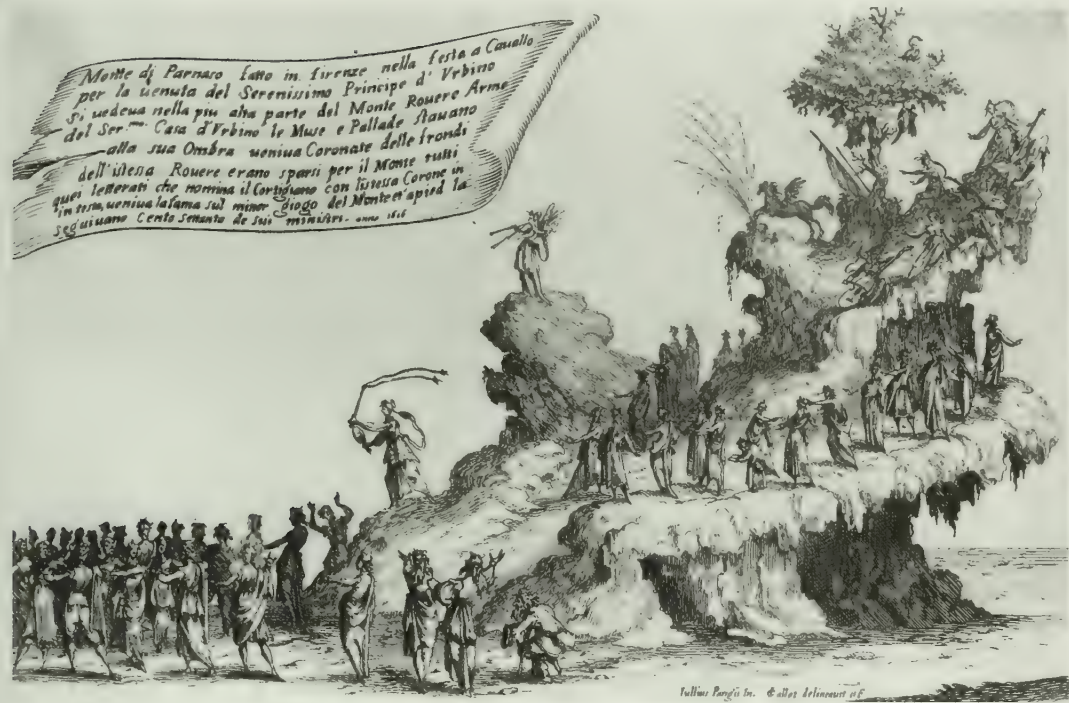 Monte di Parnaso fatto in firenze nella festa a Cauallo
per la uenuta del Serenissimo Principe d' Vrbino
Si uedeua nella piu alta parte del Monte Rouere Arme
del Ser.mo Casa d'Vrbino le Muse e Pallade stauano
alla sua Ombra ueniua Coronate delle frondi
dell'istessa Rouere erano sparsi per il Monte tutti
quei letterati che nomina il Cortigiano con l'istessa Corone in
in testa, ueniua la fama sul minor giogo del Monte et apied la
seguiuano Cento Settanta de sui ministri. anno 1616
Iullius Parigii In. Callot delineauit et F